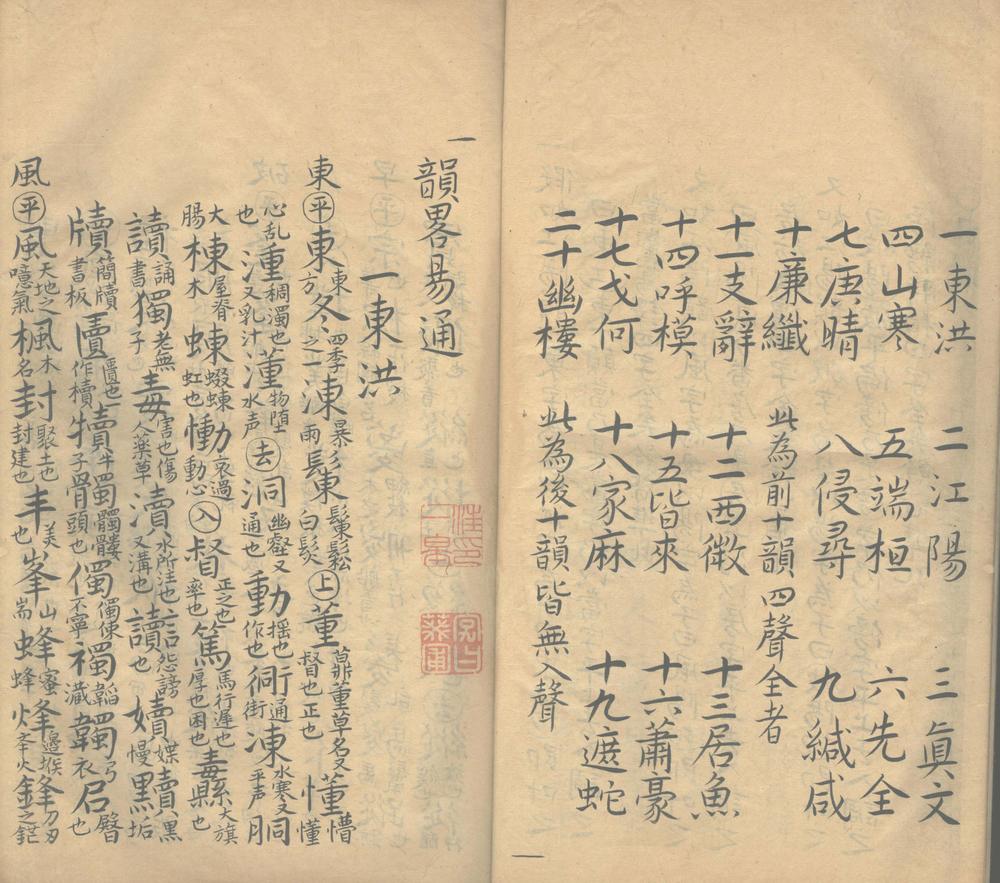 一東洪 二江陽 三眞文
四山寒 五端桓 六先全
七庚晴 八侵尋 九緘咸
十廉纖 此為前十韻四聲全者
十一支辭 十二西微 十三居魚
十四呼模 十五皆來 十六蕭豪
十七戈何 十八家麻 十九遮蛇
二十幽樓 此為後十韻皆無入聲
一
韻畧易通
一東洪
東平東東方冬四季之一涷暴雨鬆髮上董鼎董草名又督也正也懂懵懂
心乱也湩稠濁也又乳汁物堕水声去洞幽壑又通也動揺也作也衕通街凍水寒又平声胴
大腸棟屋脊木蝀螮蝀虹也慟哀過動心入督正之也率也篤馬行遲也厚也困也纛大旗也
讀誦書獨老無子毒害也傷人藥草瀆水所注也又溝也讟怨謗也嬻媟慢黷黒垢
牘簡牘書板匵匱也作櫝犢牛子髑髑髏頭也㒔㒔倲不寧襡韜藏韣弓衣𡰪臀也
風平風天地之噫氣楓木名封聚土也封建也丰美也峯山耑蜂蜜蜂烽邉堠夆火鋒刀刃之鋩